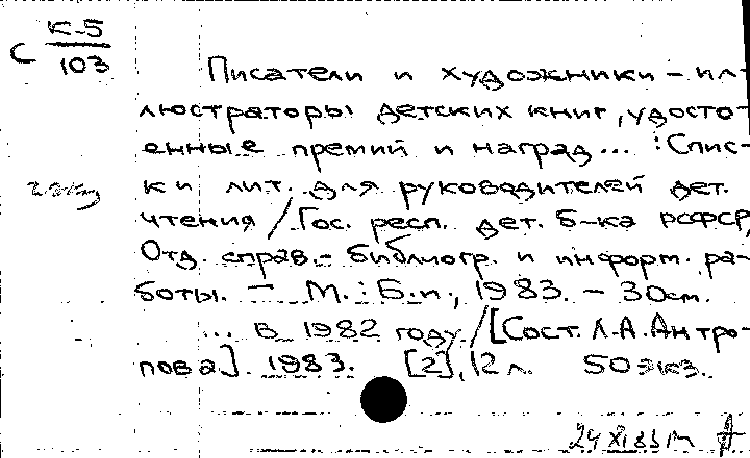 К-5
С 103
Писатели и художники-ил-
люстраторы детских книг, удосто-
енные премий и наград... : Спис-
ки лит. для руководителей дет.
чтения / Гос. респ. дет. б-ка РСФСР,
Отд. справ.-библиогр. и информ. ра-
боты. - М.: Б.и., 1983. - 30см.
... в 1982 году / [Сост. Л.А. Антро-
пова]. 1983. [2], 12 л. 50 экз.
24 XI 83